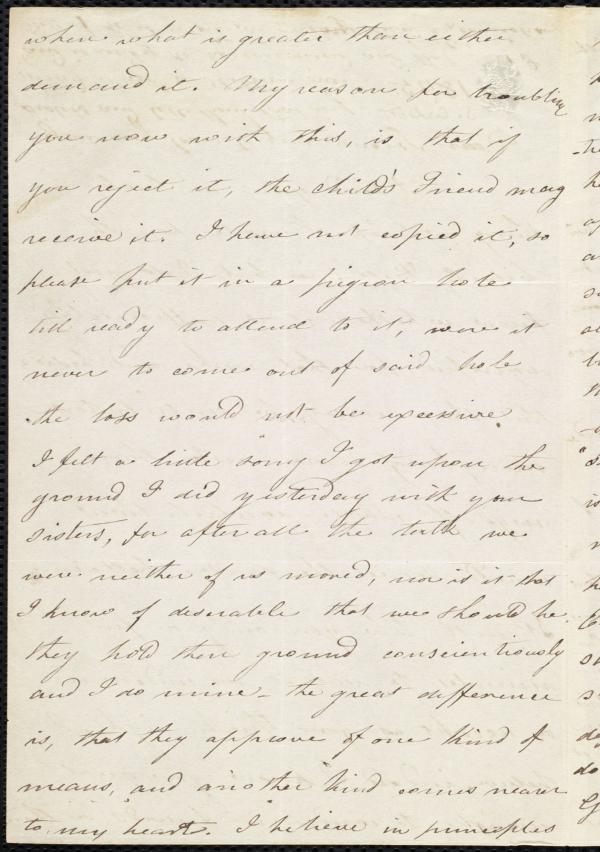 where what is greater than either
demand it. My reason for troubling
you now with this, is that if
you reject it, the child's Friend may
receive it. I have not copied it, so
please put it in a pigeon hole
till ready to attend to it, were it
never to come out of said hole
the loss would not be excessive.
I felt a little sorry I got upon the
ground I did yesterday with your
sisters, for after all the talk we
were neither of us moved, nor is it that
I know of desirable that we should be.
they hold their ground conscientiously
and I do mine - the great difference
is, that they approve of one kind of
means, and another kind comes nearer
to my heart. I believe in principles